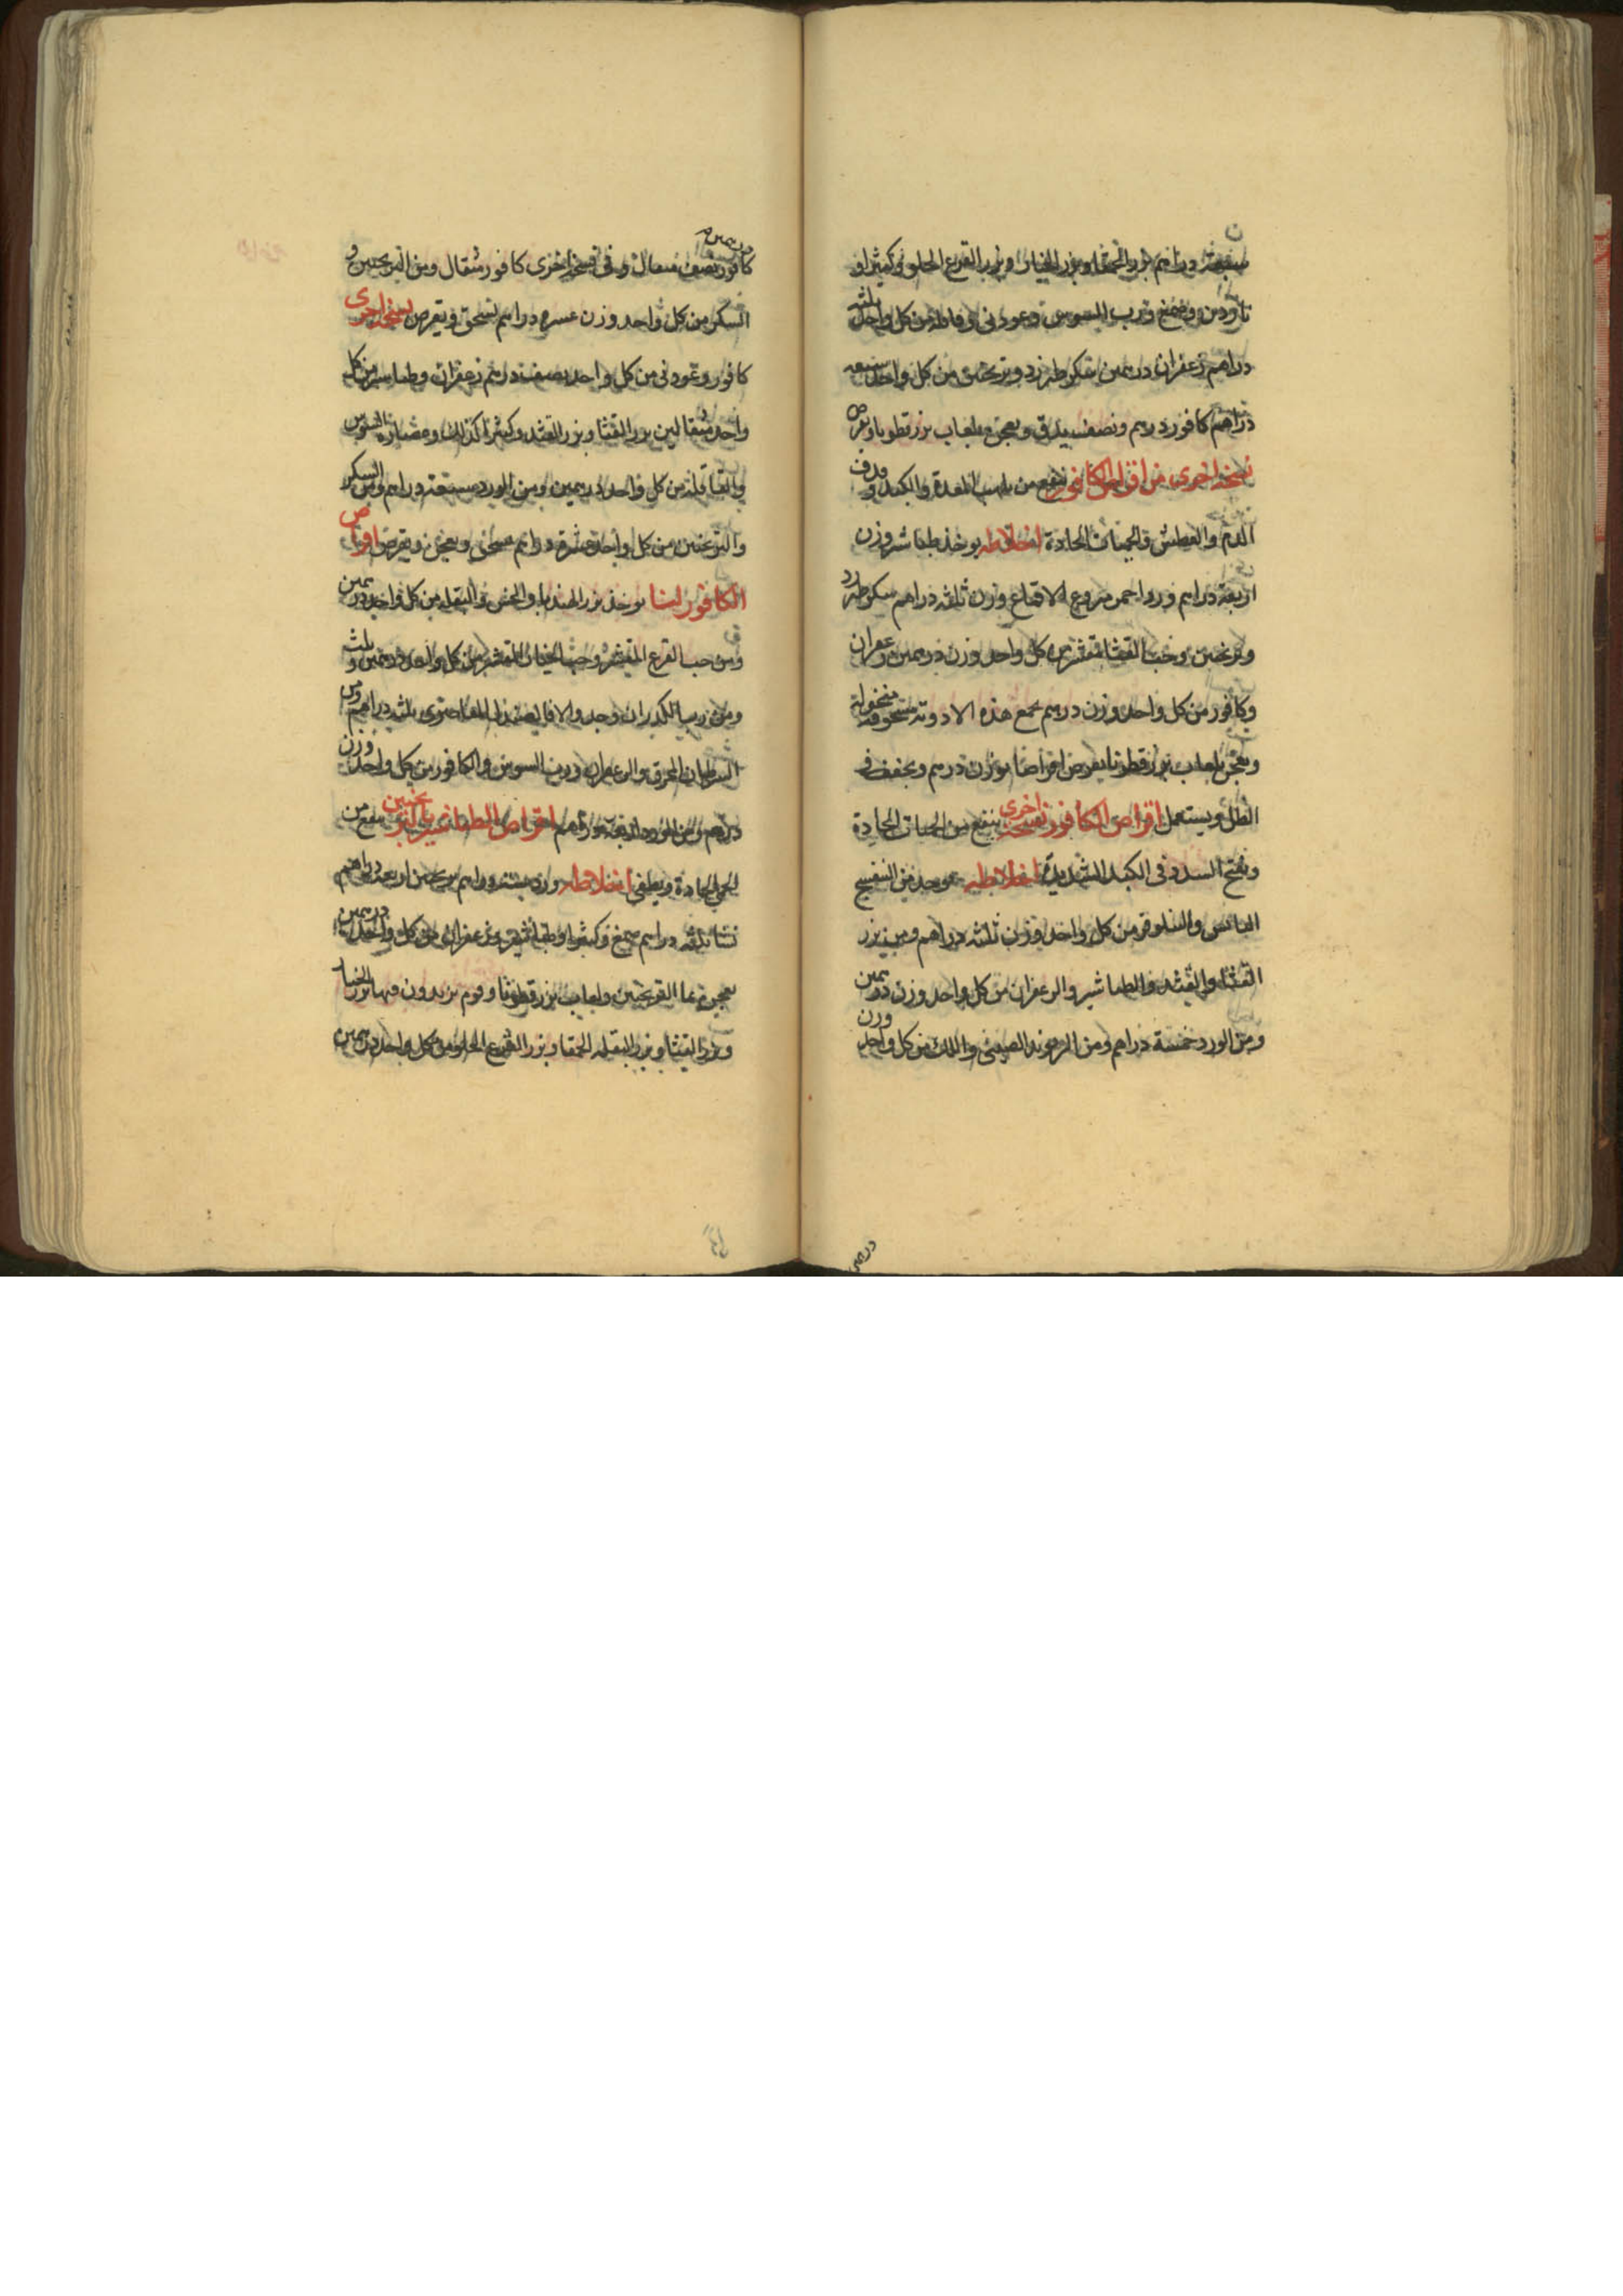 سبعة دراهم بزر الحمقا وبزر الخيار وبزر القرع الحلو وكثيرا و
وصمغ ورب السوس وعود ني وقاقلة من كل واحد ثلثة
دراهم زعفران درهمين سكر طبرزد وترنجبين من كل واحد سبعه
دراهم كافور درهم ونصف يدق ويعجن بلعاب بزرقطونا ويقرص
نسخة اخرى من اقراص الكافور تنفع من تلهب المعدة والكبد وقذف
الدم والعطش والحميات الحادة اخلاطه يوخذ طباشير وزن
اربعة دراهم ورد احمر منزوع الاقماع وزن ثلثه دراهم سكر طبرزد
وترنجبين وحب القثا مقشر من كل واحد وزن درهمين وزعفران
وكافور من كل واحد وزن درهم يجمع هذه الادوية مسحوقة منخولة
ويعجن بلعاب بزر قطونا يقرص اقراصا بوزن درهم ويجفف في
الظل ويستعمل اقراص الكافور نسخة اخرى ينفع من الحميات الحادة
وتفتح السدد في الكبد الشديدة اخلاطه يوخذ من البنفسج
اليابس والنيلوفر من كل واحد وزن ثلثه دراهم ومن بزر
القثا والقثد والطباشير والزعفران من كل واحد وزن درهمين
ومن الورد خمسة دراهم ومن الريوند الصيني واللك من كل واحد وزن
درهمين
كافور نصف مثقال وفي نسخة اخرى كافور مثقال ومن الترنجبين و
السكر من كل واحد وزن عشره دراهم تسحق ويقرص نسخة اخرى
كافور وعود ني من كل واحد نصف درهم زعفران وطباشير من كل
واحد مثقالين بزر القثا وبزر القثد وكثيرا كذلك وعصارة السوس
والقاقلة من كل واحد درهمين ومن الورد سبعة دراهم ومن السكر
والترنجبين من كل واحد عشرة دراهم يسحق ويعجن ويقرص اقراص
الكافور لنا يوخذ بزر الهندبا والخس والبقله من كل واحد درهمين
ومن حب القرع المقشر وحب الخيار المقشر من كل واحد درهمين وثلث
السرطان المحرق والزعفران ورب السوس والكافور من كل واحد وزن
درهم ومن الورد اربعة دراهم اقراص الطباشير بالترنجبين ينفع من
الحمى الحادة ويطفي اخلاطه ورد ستة دراهم ترنجبين اربعه دراهم
نشا ثلثه دراهم صمغ وكثيرا وطباشير وزعفران من كل واحد درهمين
يعجن بما الترنجبين ولعاب بزر قطونا وقوم يزيدون فيها بزر الخيار
وبزر القثا وبزر البقله الحمقا وبزر القرع الحلو من كل واحد درهمين